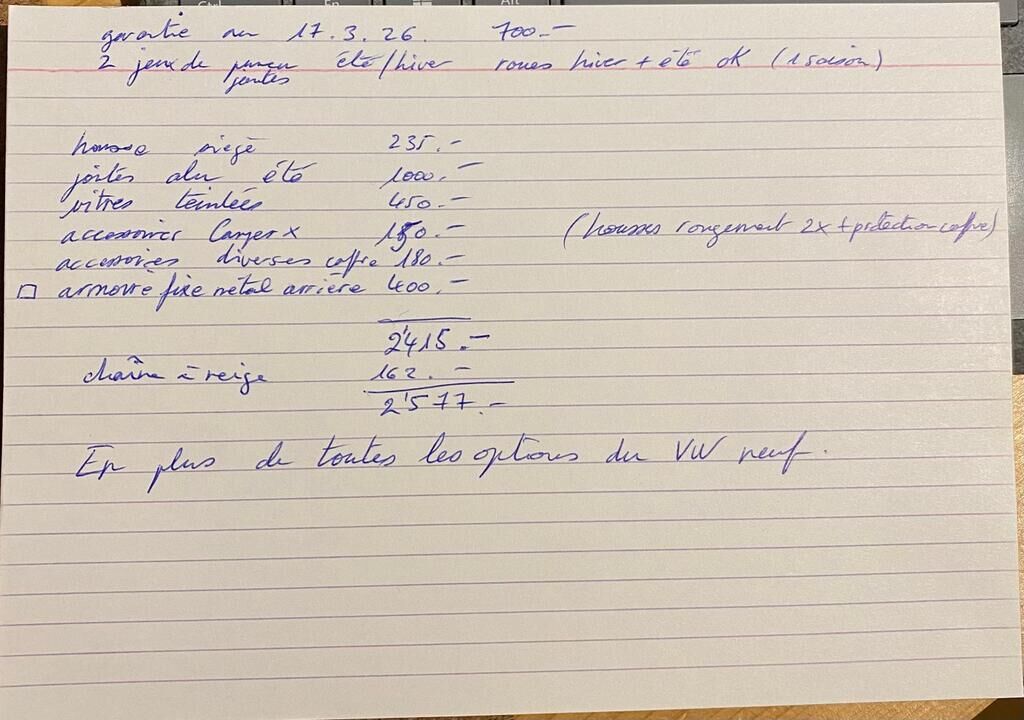 garantie au 17.3.26. 700.-
2 jeux de pneu été/hiver roues hiver + été ok (1 saison)
jantes
housse siège 235.-
jantes alu été 1000.-
vitres teintées 450.-
accessoires Canyer x 150.- (housses rangement 2x + protection coffre)
accessoires diverses coffre 180.-
□ armoire fixe métal arrière 400.-
2'415.-
chaîne à neige 162.-
2'577.-
En plus de toutes les options du VW neuf.